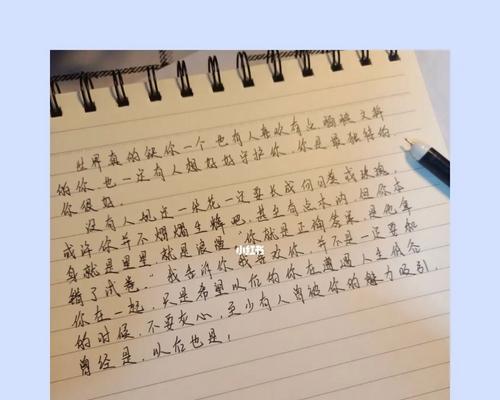 世界真的缺你一个 也有人喜欢有点
的你 也一定有人想好好守护你 你是最独特的
你很好.
没有人规定一朵花一定要长成向日葵或玫瑰
或许你并不 生辉吧. 甚至有点木讷 但你本
身就是星星 就是浪漫 你就是正确答案. 是他拿
错了试卷." 我告诉你我喜欢你, 并不是一定要和
你在一起, 只是希望以后的你在遭遇人生低谷
的时候, 不要灰心, 至少有人曾被你的魅力吸引,
曾经是, 以后也是!
小红书